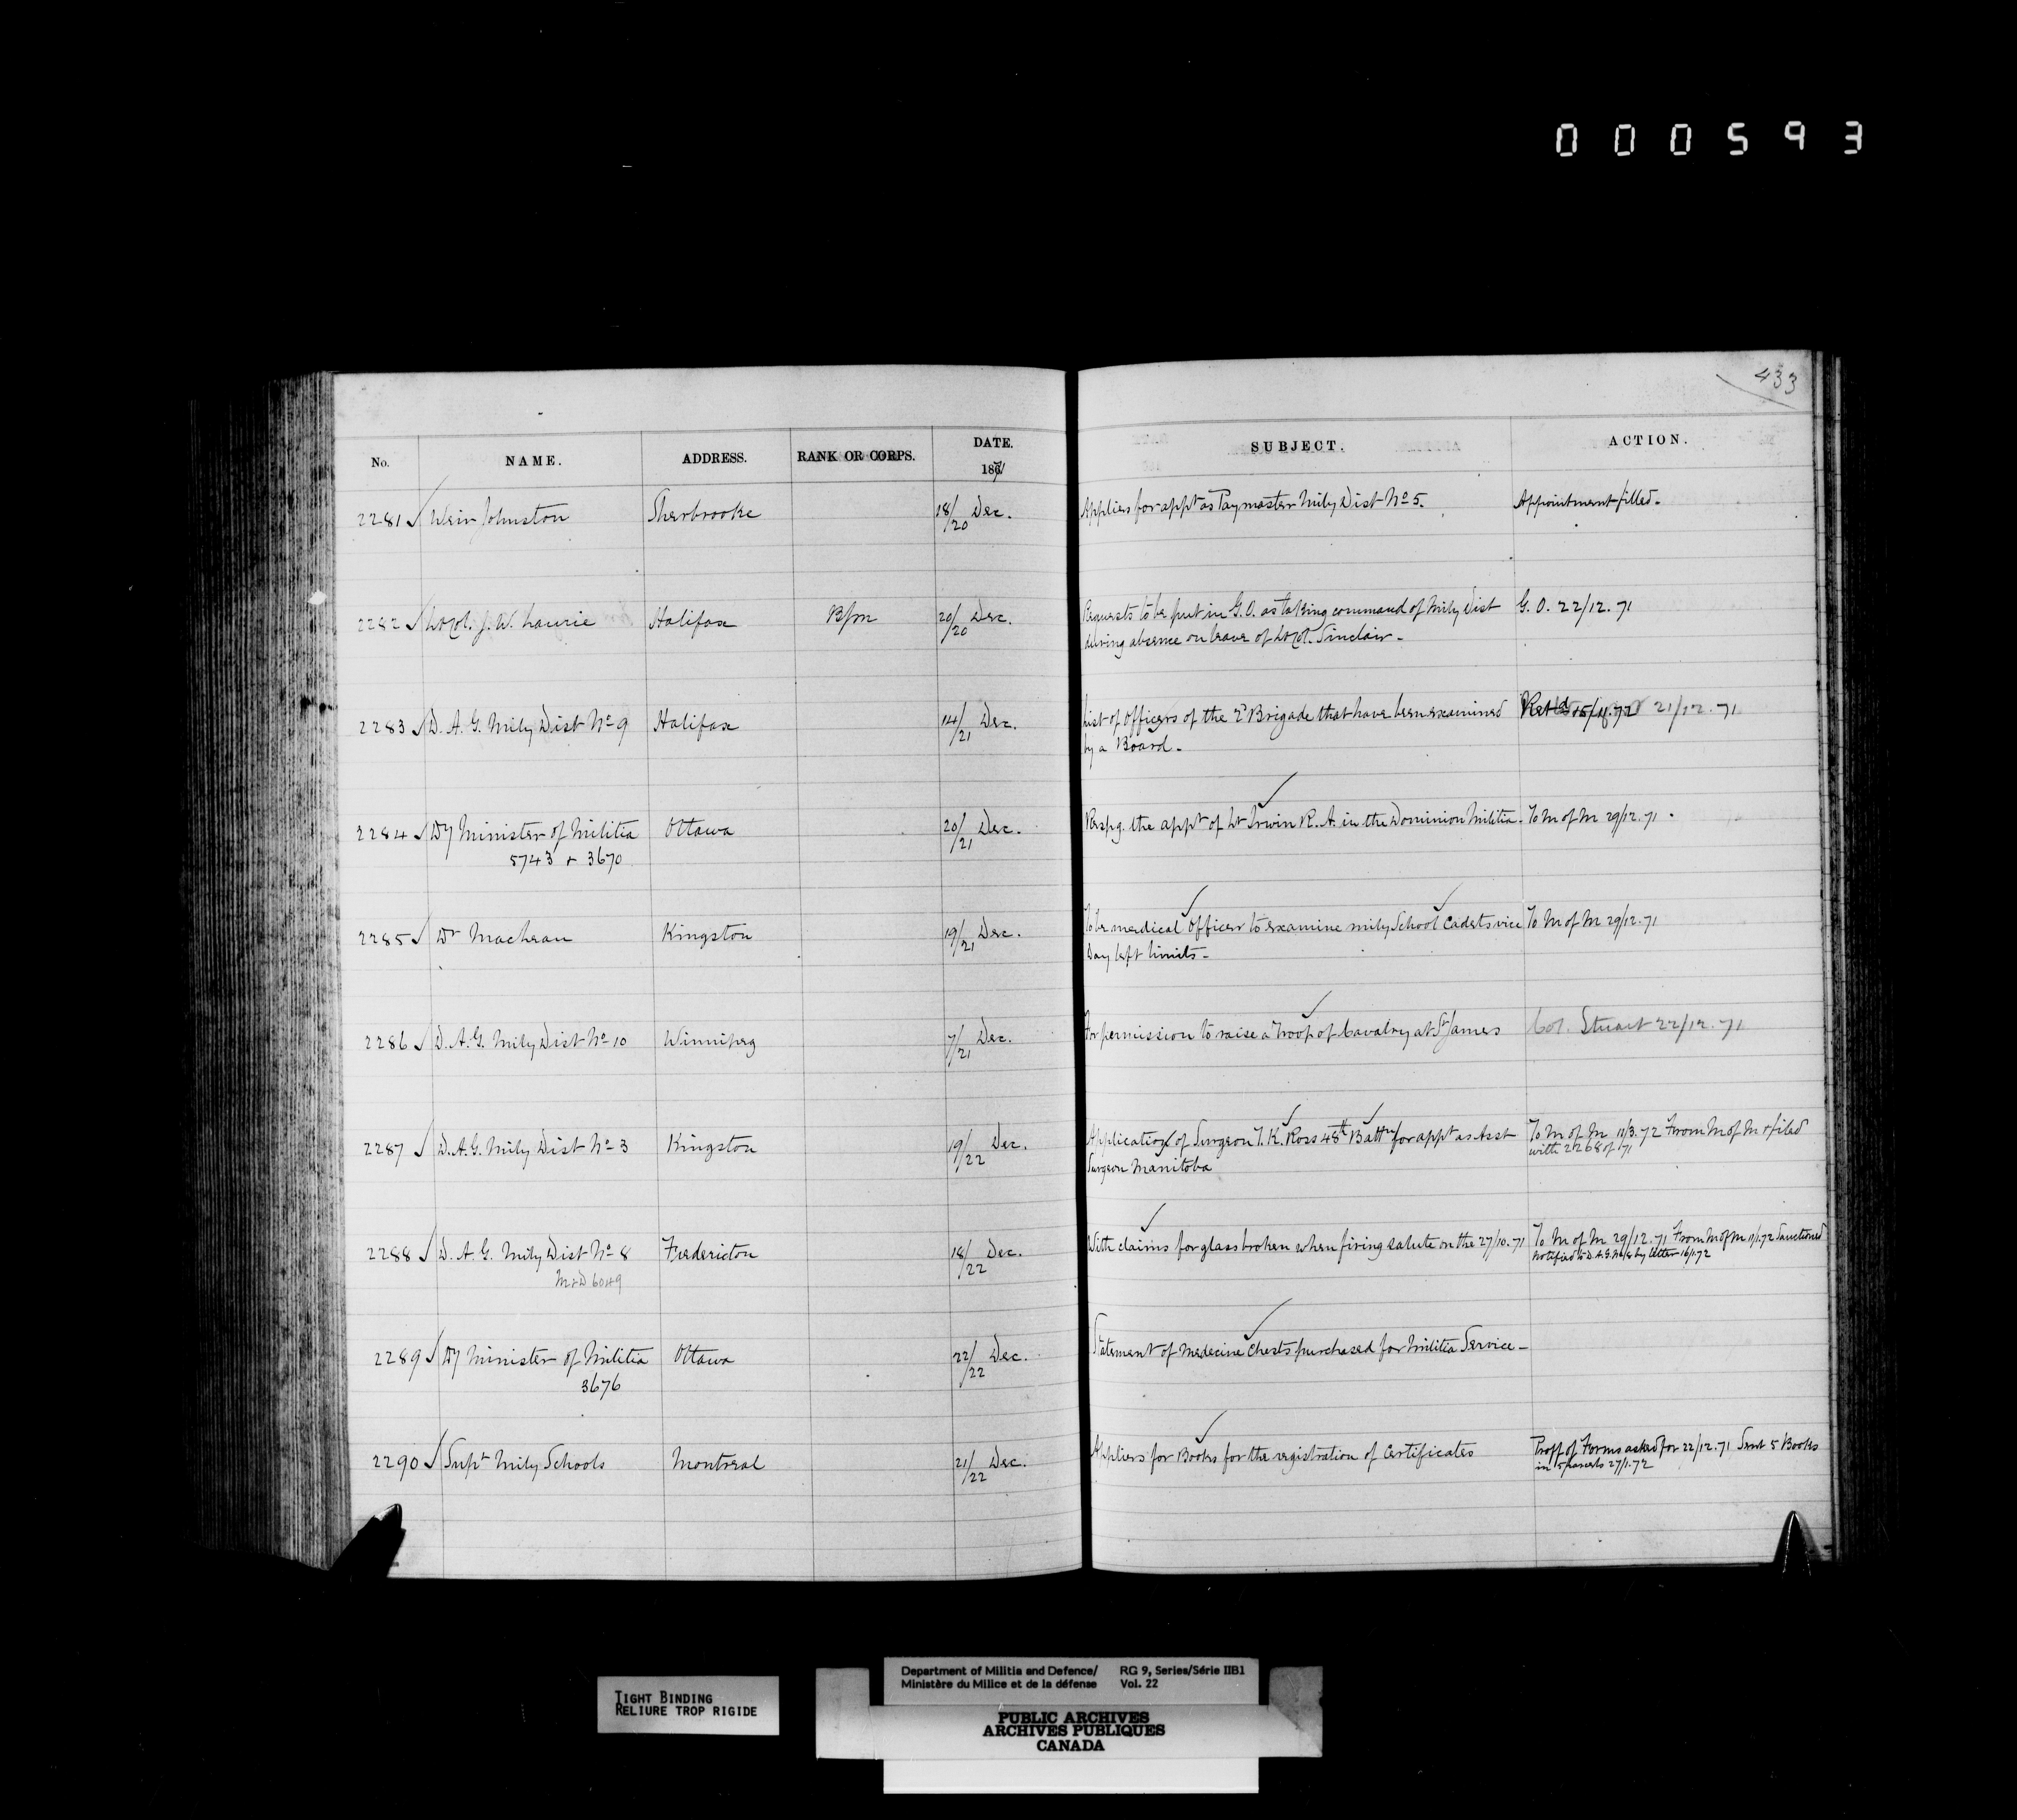 000593
433
No. NAME. ADDRESS. RANK OR CORPS. DATE. 1871 SUBJECT. ACTION.
2281 Weir Johnston Sherbrooke 18/20 Dec. Applies for appt as Paymaster Mily Dist No 5. Appointment filled.
2282 Lt Col. J. W. Laurie Halifax B/m 20/20 Dec. Requests to be put in G.O. as taking command of Mily Dist G. O. 22/12. 71
during absence on leave of Lt Col. Sinclair -
2283 D. A. G. Mily Dist No 9 Halifax 14/21 Dec. List of officers of the 2d Brigade that have been examined 21/12. 71
by a Board -
2284 Dy Minister of Militia Ottawa 20/21 Dec. Respg. the appt of Lt Irwin R. A. in the Dominion Militia - To M of M 29/12. 71
5743 + 3670
2285 Dr Maclean Kingston 19/21 Dec. To be medical officer to examine mily School Cadets vice To M of M 29/12. 71
Day left limits -
2286 D. A. G. Mily Dist No 10 Winnipeg 7/21 Dec. For permission to raise a Troop of Cavalry at St James Col. Stuart 22/12. 71
2287 D. A. G. Mily Dist No 3 Kingston 19/22 Dec. Application of Surgeon T. K. Ross 48th Battn for appt as Asst To M of M 11/3. 72 From M of M & filed
Surgeon Manitoba with 2268 of 71
2288 D. A. G. Mily Dist No 8 Fredericton 18/22 Dec. With claims for glass broken when firing salute on the 27/10. 71 To M of M 29/12. 71 From M of M 11/1.72 Sanctioned
M&D 6049 Notified to D.A.G. No 8 by letter 16/1.72
2289 Dy Minister of Militia Ottawa 22/22 Dec. Statement of Medecine Chests purchased for Militia Service -
3676
2290 Supt Mily Schools Montreal 21/22 Dec. Applies for Books for the registration of Certificates Proff of Forms asked for 22/12. 71 Sent 5 Books
in 5 parcels 27/1. 72
TIGHT BINDING
RELIURE TROP RIGIDE
Department of Militia and Defence/ RG 9, Series/Série IIB1
Ministère du Milice et de la défense Vol. 22
PUBLIC ARCHIVES
ARCHIVES PUBLIQUES
CANADA